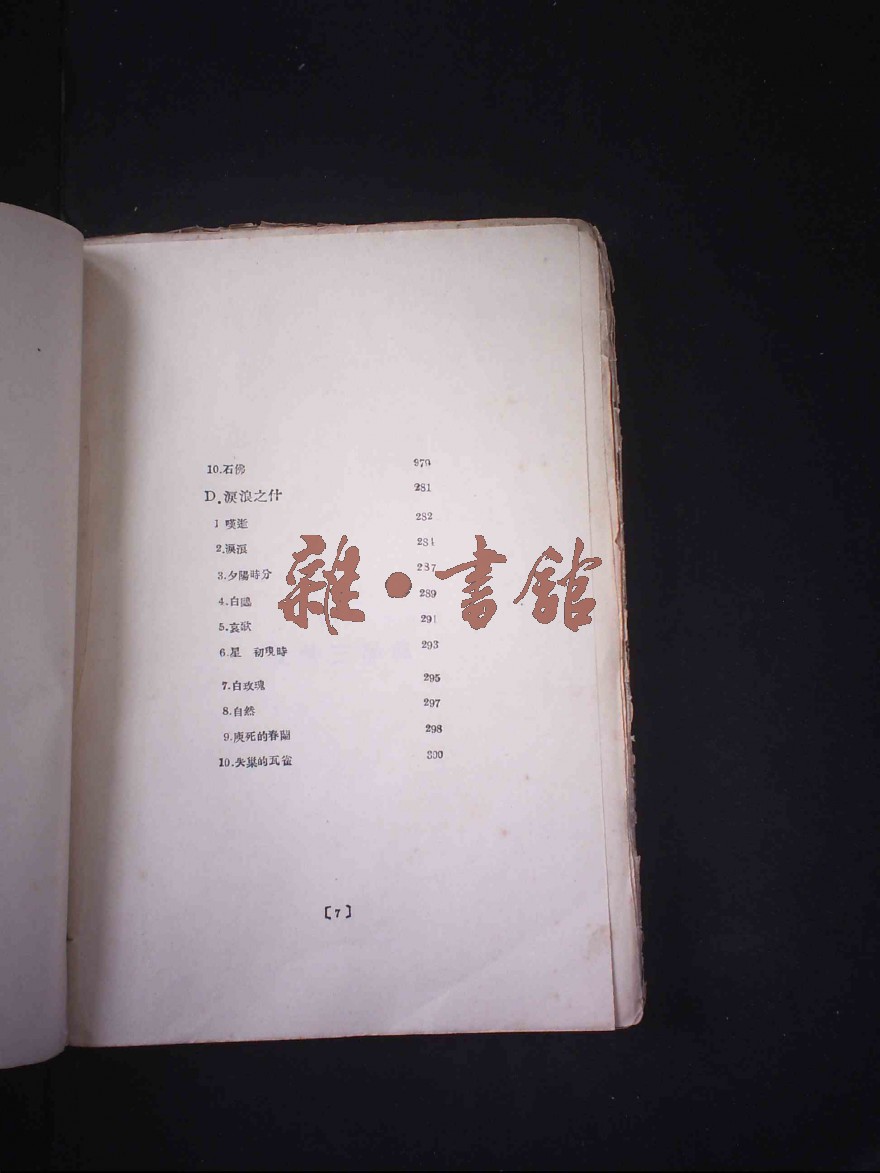 10.石佛 970
D.淚浪之什 281
1 嘆逝 282
2.淚浪 284
3.夕陽時分 287
4.白鷗 289
5.哀歌 291
6.星 初現時 293
7.白玫瑰 295
8.自然 297
9.庾死的春蘭 298
10.失巢的瓦雀 300
〔7〕
雜·書館